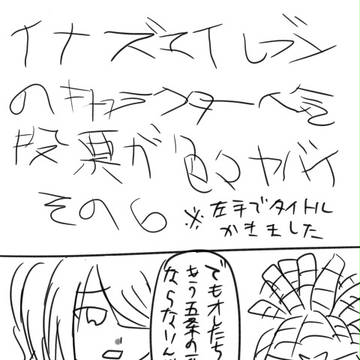 イナズマイレブン
のキャラクター人気
投票が色々ヤバイ
その6
※左手でタイトル
かきました
でもオレたち
もう五条の
ならないん